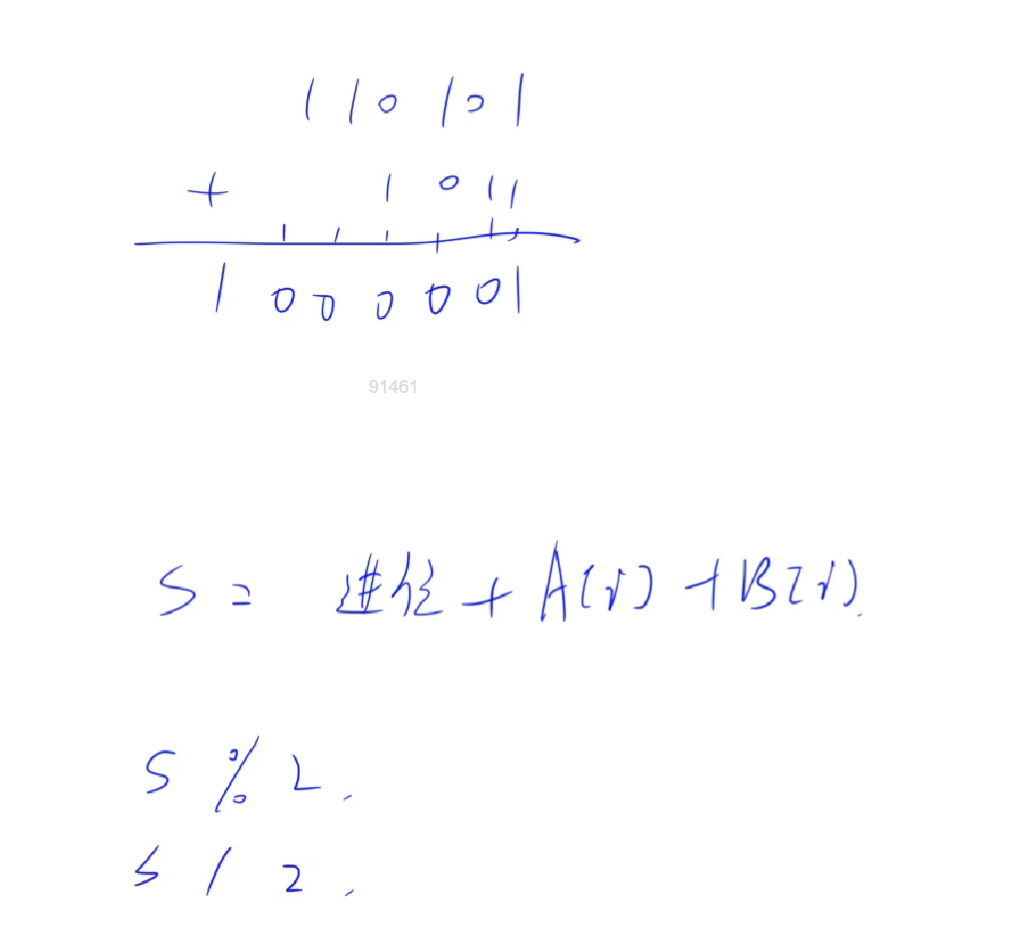 110101
+ 1011
1000001
91461
S = 进位 + A(i) + B(i).
S % 2.
S / 2.